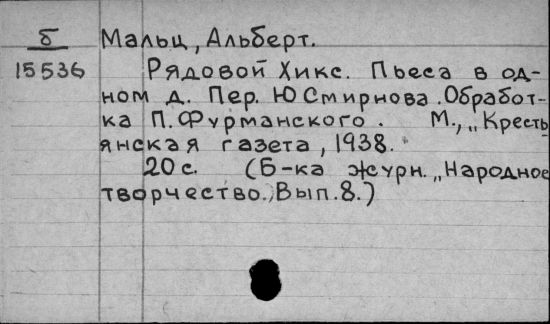 б Мальц, Альберт.
15536 Рядовой Хикс. Пьеса в од-
ном д. Пер. Ю Смирнова. Обработ-
ка П. Фурманского. М., „Кресть
янская газета, 1938.
20 с. (Б-ка журн. „Народное
творчество. Вып. 8.)